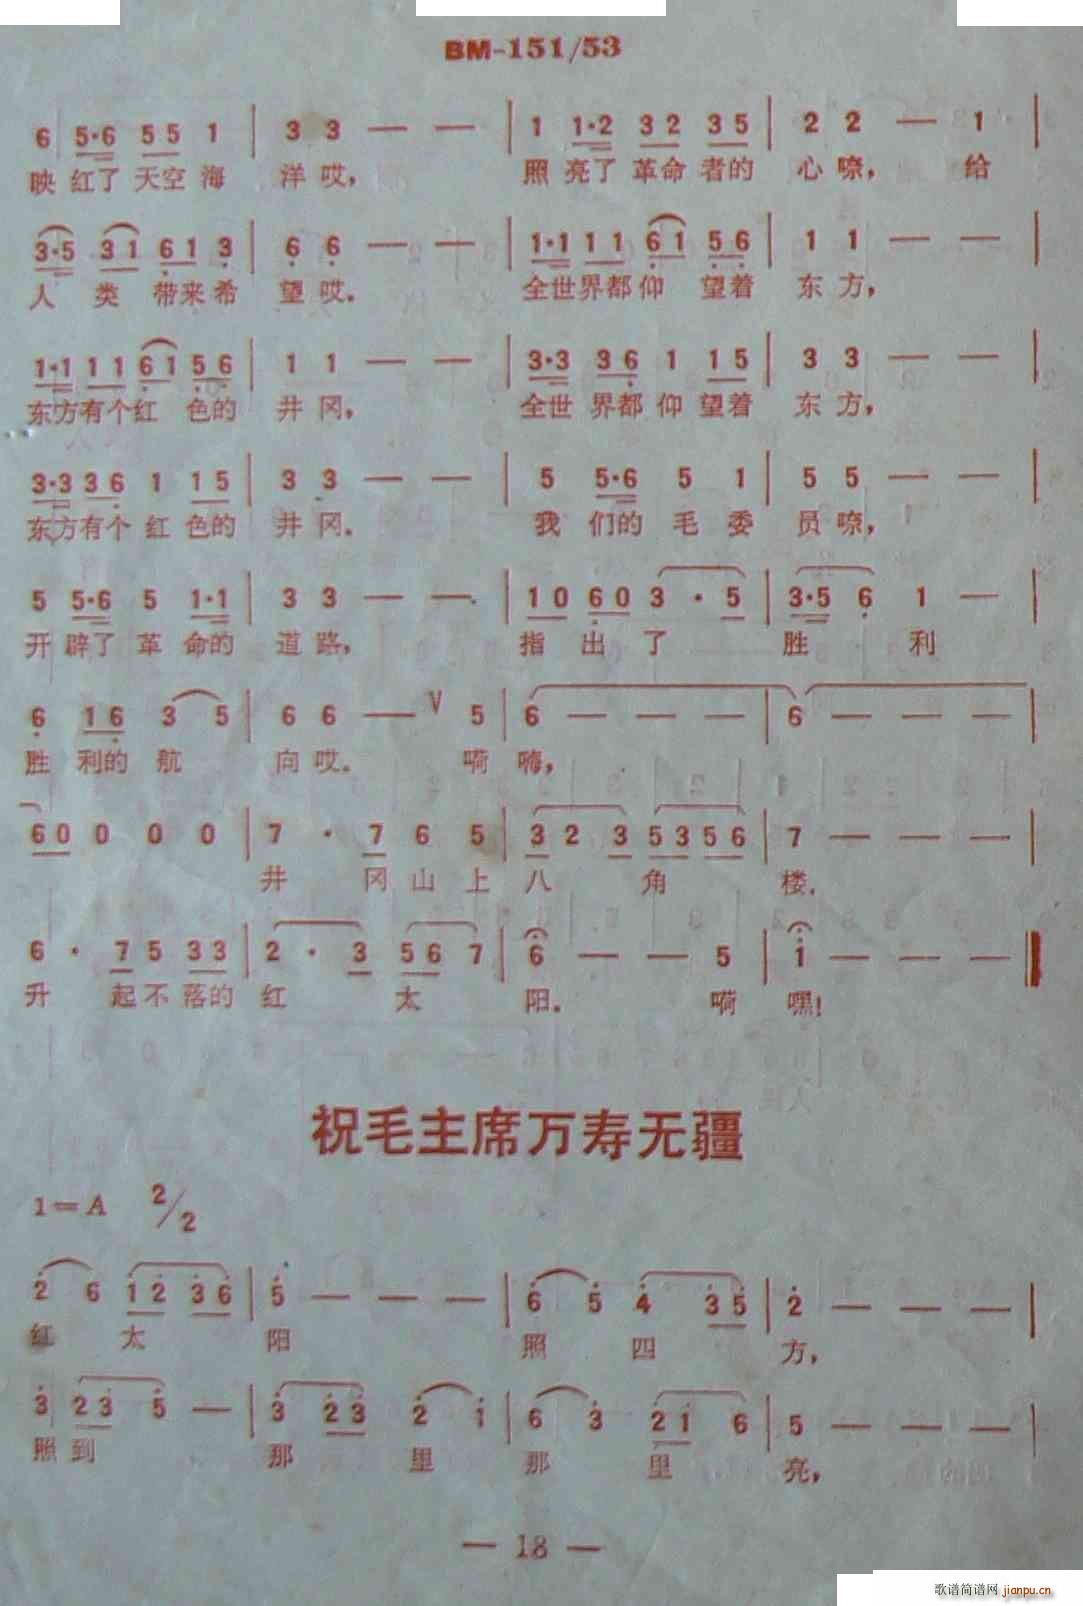 BM-151/53
6 5·6 5 5 1 | 3 3 — — | 1 1·2 3 2 3 5 | 2 2 — 1 |
映 红了 天空 海 洋 哎, 照 亮了 革命 者的 心 嘹, 给
3·5 3 1 6 1 3 | 6 6 — — | 1·1 1 1 6 1 5 6 | 1 1 — — |
人 类 带来 希 望 哎. 全世界都仰 望着 东 方,
1·1 1 1 6 1 5 6 | 1 1 — — | 3·3 3 6 1 1 5 | 3 3 — — |
东方有个红 色的 井 冈, 全世 界都 仰 望着 东 方,
3·3 3 6 1 1 5 | 3 3 — — | 5 5·6 5 1 | 5 5 — — |
东方有个 红 色的 井 冈. 我 们的 毛 委 员 嘹,
5 5·6 5 1·1 | 3 3 — — | 1 0 6 0 3 · 5 | 3·5 6 1 — |
开 辟了 革 命的 道 路, 指 出 了 胜 利
6 1 6 3 5 | 6 6 — V 5 | 6 — — — | 6 — — — |
胜 利的 航 向 哎. 嗬 嗨,
6 0 0 0 0 | 7 · 7 6 5 | 3 2 3 5 3 5 6 | 7 — — — |
井 冈 山 上 八 角 楼.
6 · 7 5 3 3 | 2 · 3 5 6 7 | 6 — — 5 | 1 — — — ‖
升 起 不 落的 红 太 阳. 嗬 嘿!
祝毛主席万寿无疆
1=A 2/2
2 6 1 2 3 6 | 5 — — — | 6 5 4 3 5 | 2 — — — |
红 太 阳 照 四 方,
3 2 3 5 — | 3 2 3 2 1 | 6 3 2 1 6 | 5 — — — |
照 到 那 里 那 里 亮,
— 18 —
歌谱简谱网 jianpu.cn